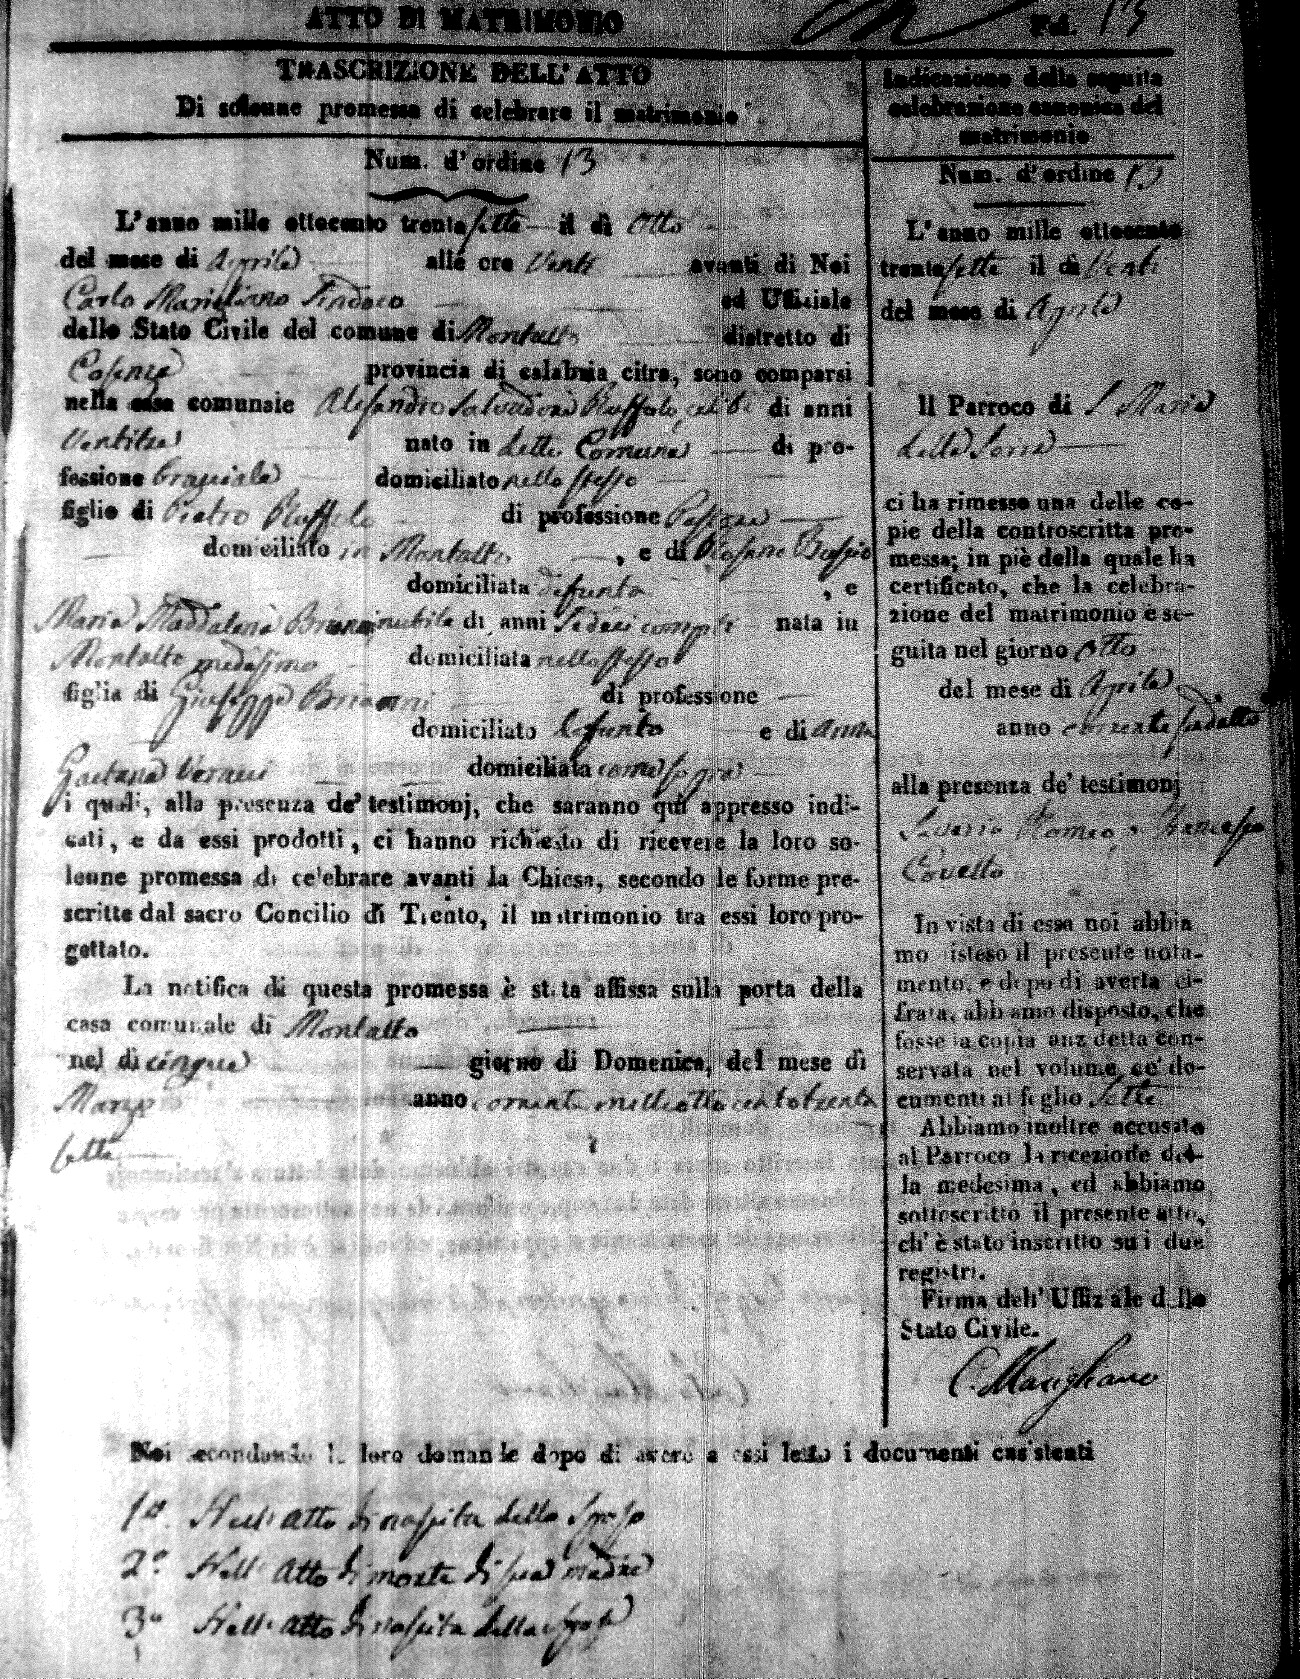 ATTO DI MATRIMONIO
Fol. 13
TRASCRIZIONE DELL'ATTO
Di solenne promessa di celebrare il matrimonio
Num. d'ordine 13
L'anno mille ottocento trentasette il dì Otto
del mese di Aprile alle ore Venti avanti di Noi
Carlo Marigliano Sindaco ed Uffiziale
dello Stato Civile del comune di Montalto distretto di
Cosenza provincia di calabria citra, sono comparsi
nella casa comunale Alesandro Salvadore Ruffolo celibe di anni
Ventitre nato in detto Comune di pro-
fessione braciale domiciliato nello stesso
figlio di Pietro Ruffolo di professione
domiciliato in Montalto, e di
domiciliata defunta, e
Maria Maddalena nubile di anni Sedeci compiti nata in
Montalto medesimo domiciliata nello stesso
figlia di Giuseppe di professione
domiciliato defunto e di Anna
Gaetana domiciliata come sopra
i quali, alla presenza de' testimonj, che saranno qui appresso indi-
cati, e da essi prodotti, ci hanno richiesto di ricevere la loro so-
lenne promessa di celebrare avanti la Chiesa, secondo le forme pre-
scritte dal sacro Concilio di Trento, il matrimonio tra essi loro pro-
gettato.
La notifica di questa promessa è stata affissa sulla porta della
casa comunale di Montalto
nel dì cinque giorno di Domenica, del mese di
Marzo anno corrente mille otto cento trenta
sette
Indicazione della seguita
celebrazione canonica del
matrimonio
Num. d'ordine 13
L'anno mille ottocento
trentasette il dì Venti
del mese di Aprile
Il Parroco di S. Maria
della Serra
ci ha rimesso una delle co-
pie della controscritta pro-
messa; in piè della quale ha
certificato, che la celebra-
zione del matrimonio e se-
guita nel giorno otto
del mese di Aprile
anno corrente sudetto
alla presenza de' testimonj
Saverio Romeo, e Francesco
Covello
In vista di essa noi abbia
mo isteso il presente nota-
mento, e dopo di averla ci-
frata, abbiamo disposto, che
fosse la copia anzidetta con-
servata nel volume de' do-
cumenti al foglio sette
Abbiamo inoltre accusato
al Parroco la ricezione del-
la medesima, ed abbiamo
sottoscritto il presente atto,
ch' è stato inscritto su i due
registri.
Firma dell' Uffiziale dello
Stato Civile.
C. Marigliano
Noi secondando le loro domande dopo di avere a essi letto i documenti consistenti
1° Nell'atto di nascita dello Sposo
2° Nell'Atto di morte di sua madre
3° Nell'atto di nascita della sposa